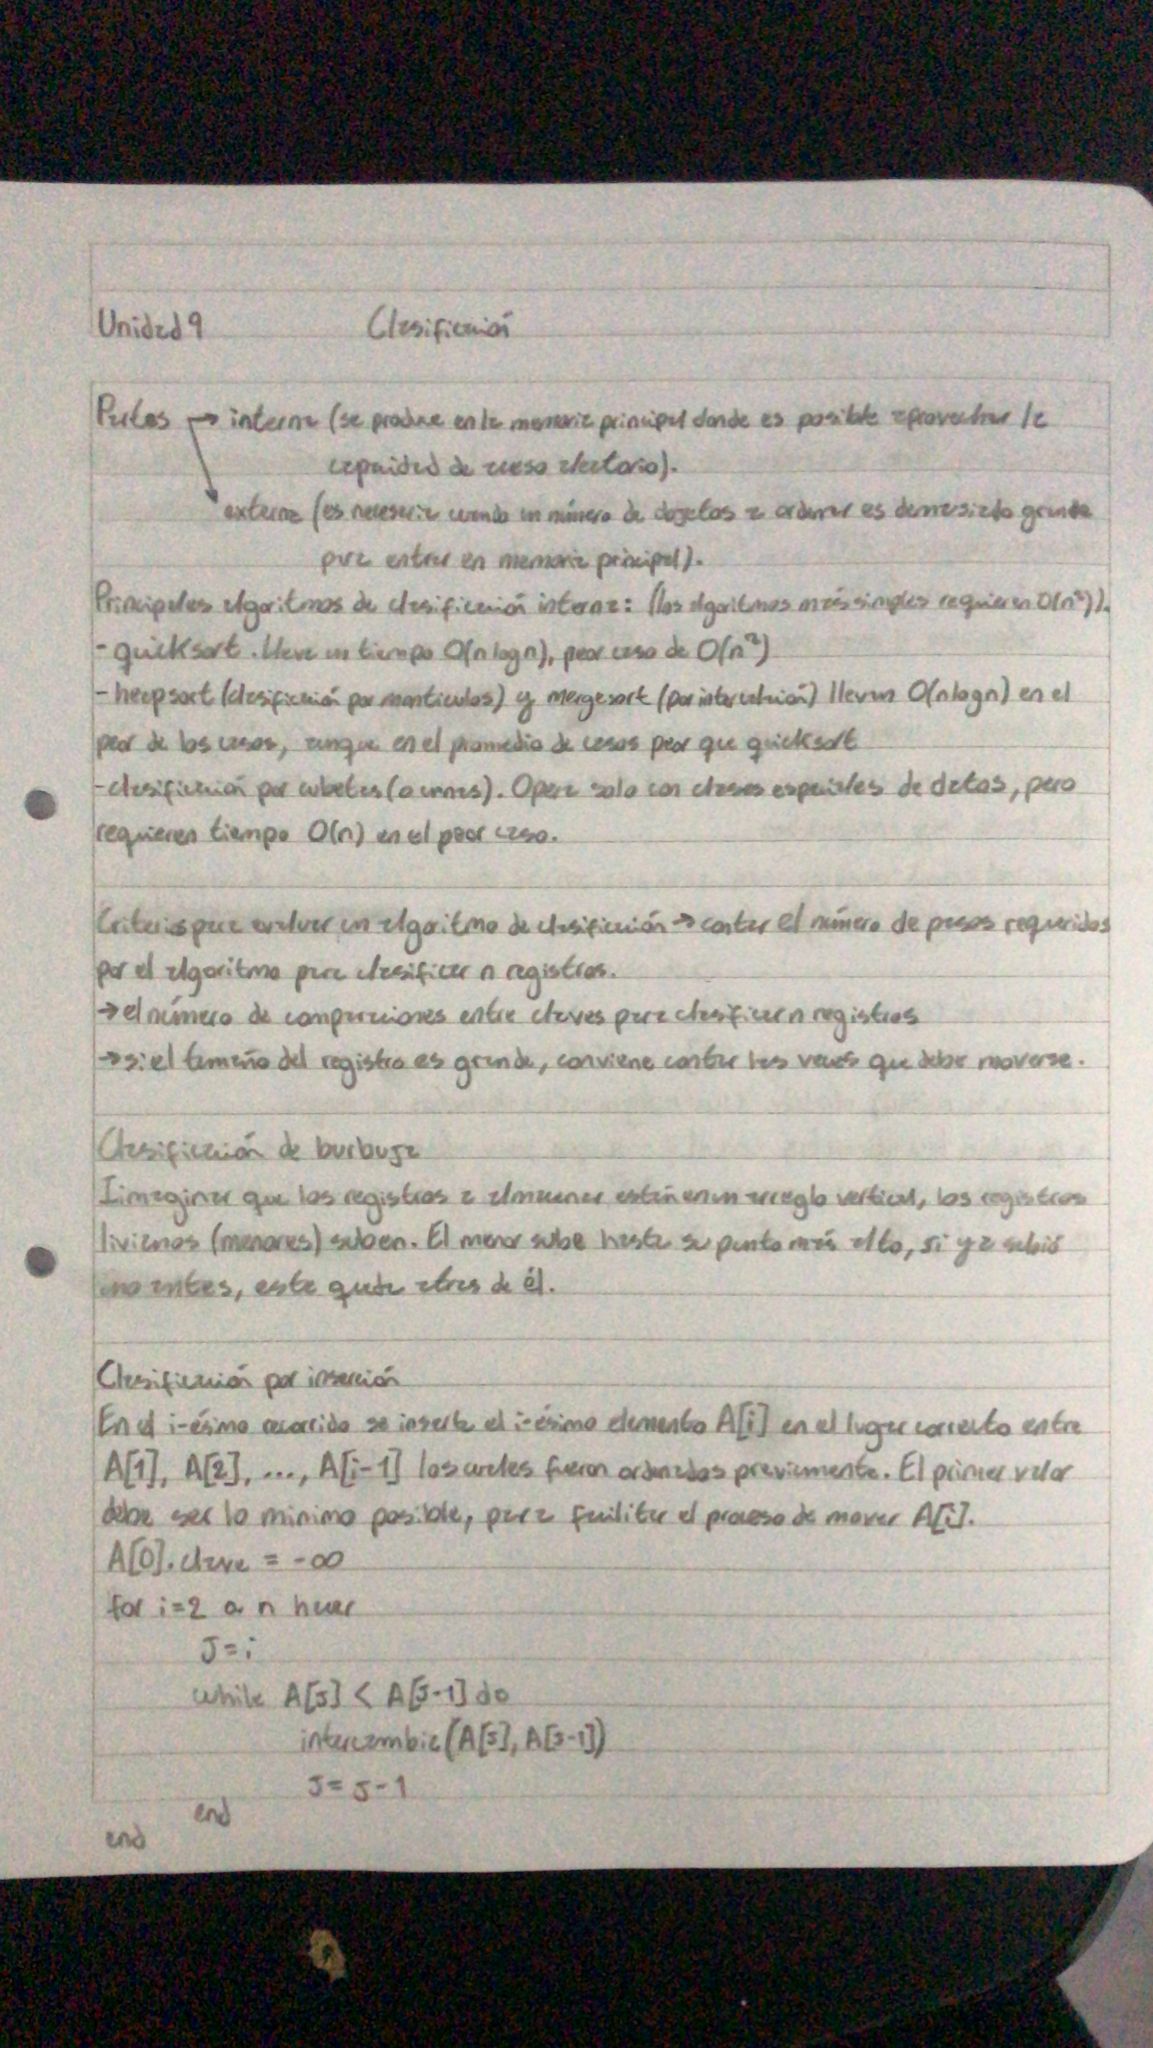 Unidad 9 Clasificación
Partes → interna (se produce en la memoria principal donde es posible aprovechar la
capacidad de acceso aleatorio).
externa (es necesaria cuando un número de objetos a ordenar es demasiado grande
para entrar en memoria principal).
Principales algoritmos de clasificación interna: (los algoritmos más simples requieren O(n²)).
- quicksort. Lleva un tiempo O(n logn), peor caso de O(n²)
- heapsort (clasificación por montículos) y mergesort (por intercalación) llevan O(nlogn) en el
peor de los casos, aunque en el promedio de casos peor que quicksort
- clasificación por cubetas (o urnas). Opera solo con clases especiales de datos, pero
requieren tiempo O(n) en el peor caso.
Criterios para evaluar un algoritmo de clasificación → contar el número de pasos requeridos
por el algoritmo para clasificar n registros.
→ el número de comparaciones entre claves para clasificar n registros
→ si el tamaño del registro es grande, conviene contar las veces que debe moverse.
Clasificación de burbuja
Imaginar que los registros a almacenar están en un arreglo vertical, los registros
livianos (menores) suben. El menor sube hasta su punto más alto, si ya subió
uno antes, este queda atras de él.
Clasificación por inserción
En el i-ésimo recorrido se inserta el i-ésimo elemento A[i] en el lugar correcto entre
A[1], A[2], ..., A[i-1] los cuales fueron ordenados previamente. El primer valor
debe ser lo minimo posible, para facilitar el proceso de mover A[i].
A[0].clave = -∞
for i=2 a n hacer
J=i
while A[J] < A[J-1] do
intercambia(A[J], A[J-1])
J= J-1
end
end